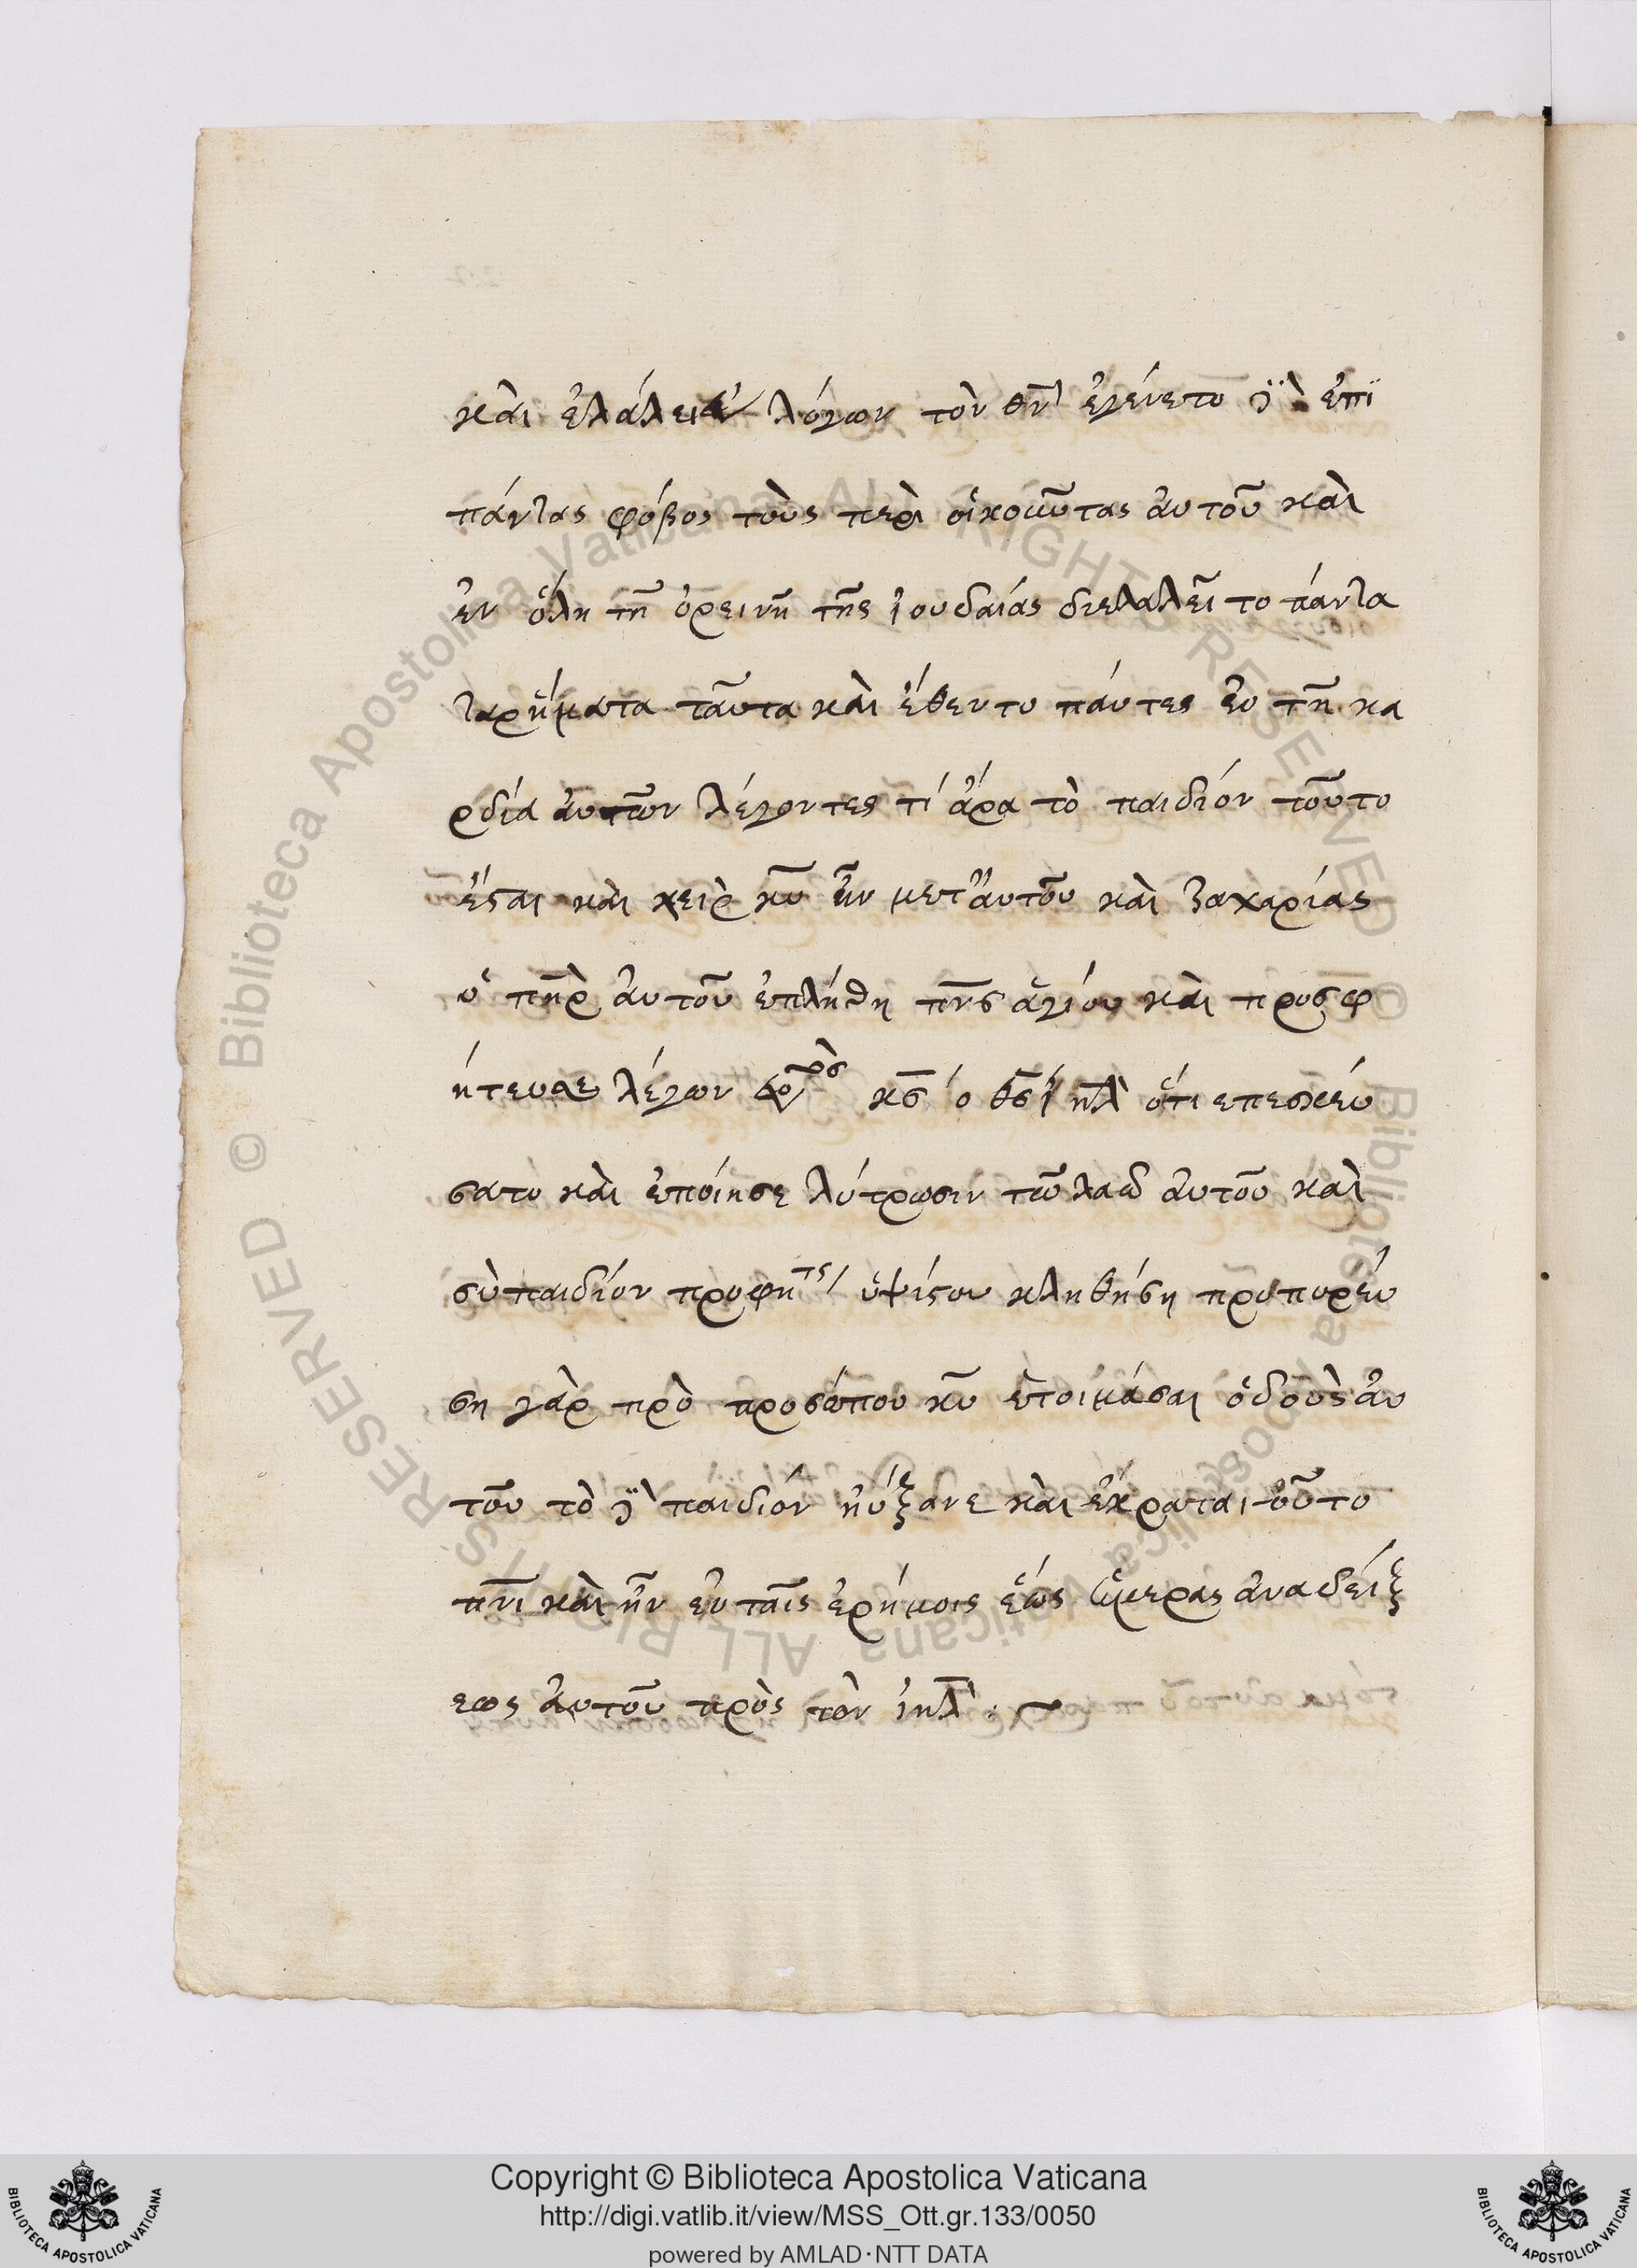 καὶ ἐλάλει λόγων τὸν θν̅ ἐγένετο ἐπὶ
πάντας φόβος τοὺς περὶ οἰκοῦντας ἀυτοῦ καὶ
ἐν ὅλη τῆ ὀρεινῆ τῆς ἰουδαίας διελαλεῖτο πάντα
τα ρήματα ταῦτα καὶ ἔθεντο πάντες ἐν τῆ κα
ρδία ἀυτῶν λέγοντες τί ἄρα τὸ παιδίον τοῦτο
ἔσται καὶ χεὶρ κυ̅ ἦν μετ' ἀυτοῦ καὶ Ζαχαρίας
ὁ πη̅ρ ἀυτοῦ ἐπλήσθη πν̅ς ἁγίου καὶ προσφ
ήτευσε λέγων κς̅ ὁ θς̅ ἰηλ̅ ὅτι επεσκέψ
σατο καὶ ἐποίησε λύτρωσιν τῶ λαῶ ἀυτοῦ καὶ
σὺ παιδίον προφητς ὑψίστου κληθήση προπορεύ
ση γὰρ πρὸ προσώπου κυ̅ ἑτοιμάσαι ὁδοὺς ἀυ
τοῦ τὸ παιδίον ηὔξανε καὶ ἐκραταιοῦτο
πν̅ι καὶ ἦν ἐν ταῖς ἐρήμοις ἕως ἡμερας ἀναδείξ
εως ἀυτοῦ πρὸς τὸν ἰηλ̅ :~
Copyright © Biblioteca Apostolica Vaticana
http://digi.vatlib.it/view/MSS_Ott.gr.133/0050
powered by AMLAD·NTT DATA
BIBLIOTECA APOSTOLICA VATICANA
BIBLIOTECA APOSTOLICA VATICANA
Biblioteca Apostolica Vaticana ALL RIGHTS RESERVED © Biblioteca Apostolica Vaticana ALL RIGHTS RESERVED ©